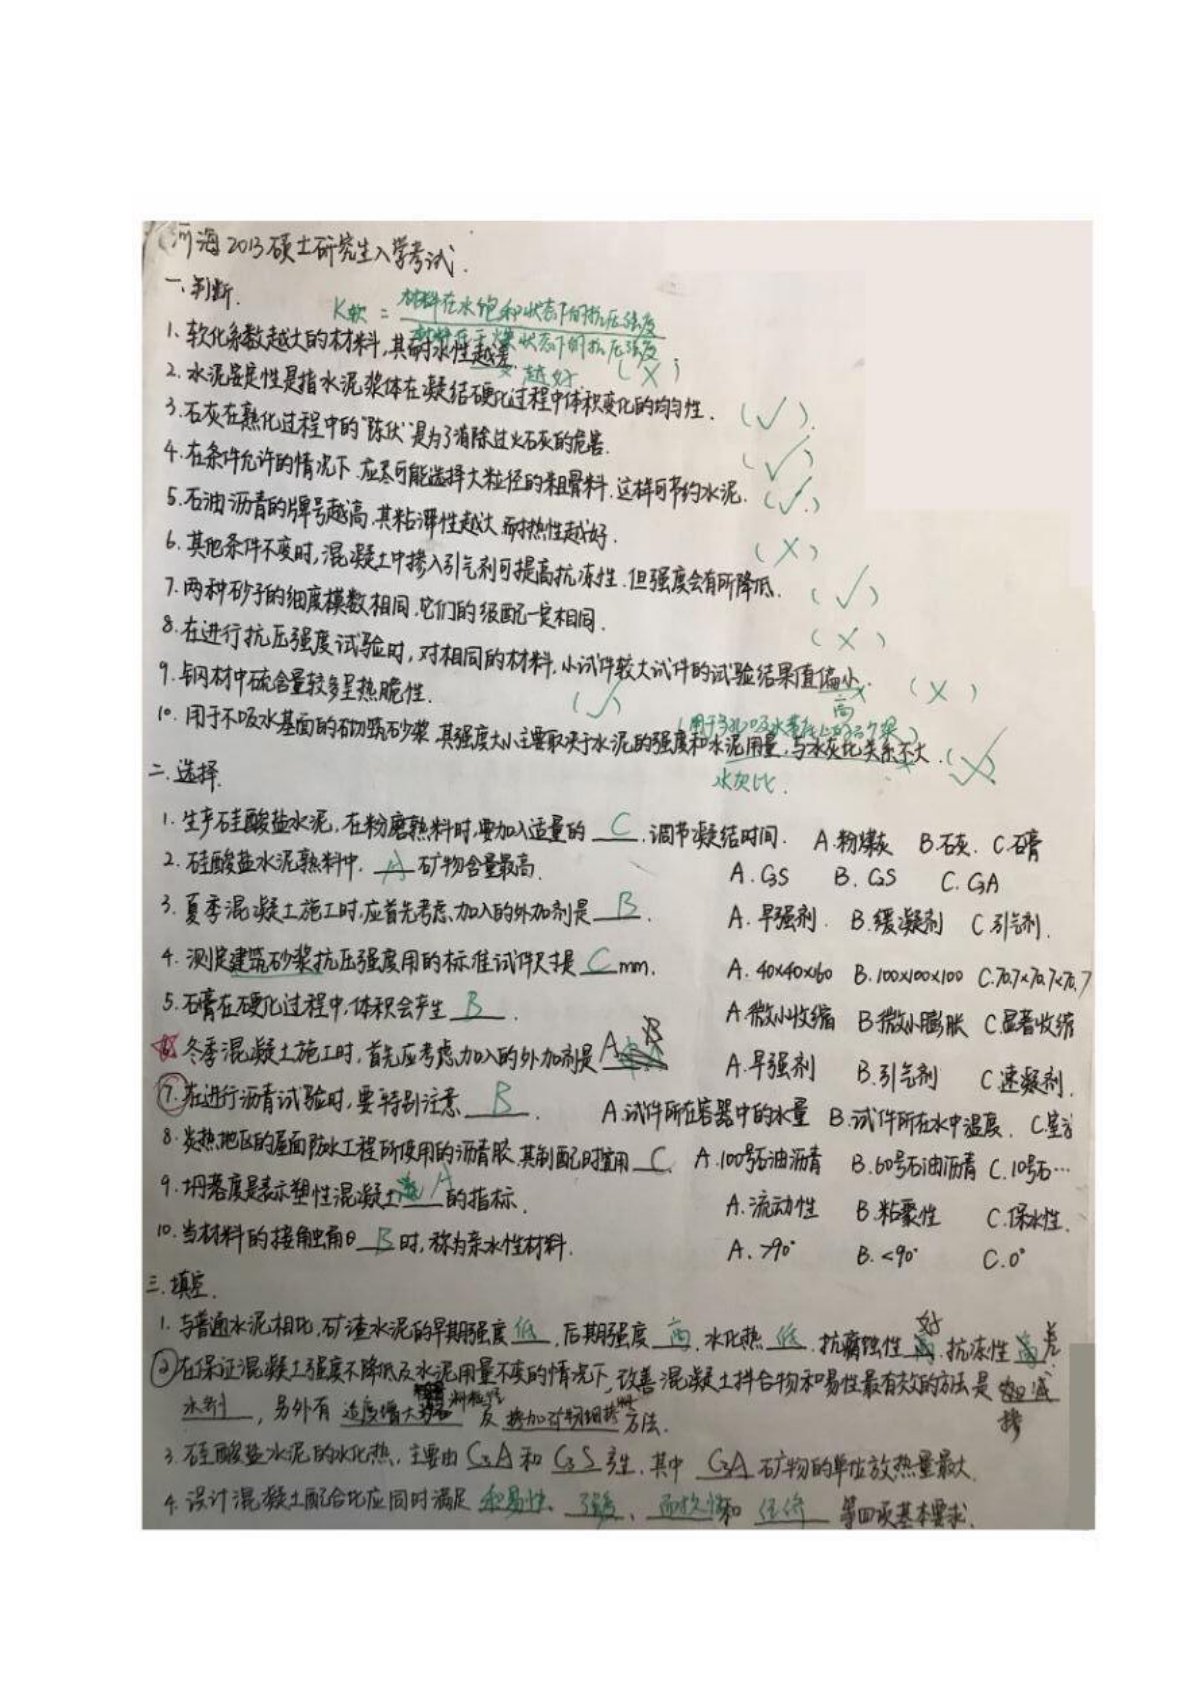 河海2013硕士研究生入学考试.
一、判断.
K软 = 材料在水饱和状态下的抗压强度
材料在干燥状态下的抗压强度
1、软化系数越大的材料,其耐水性越差. 越好 (×)
2.水泥安定性是指水泥浆体在凝结硬化过程中体积变化的均匀性. (√).
3.石灰在熟化过程中的"陈伏"是为了消除过火石灰的危害. (√)
4.在条件允许的情况下.应尽可能选择大粒径的粗骨料.这样可节约水泥. (√.)
5.石油沥青的牌号越高.其粘滞性越大.耐热性越好. (×)
6.其他条件不变时,混凝土中掺入引气剂可提高抗冻性.但强度会有所降低. (√)
7.两种砂子的细度模数相同.它们的级配一定相同. (×)
8.在进行抗压强度试验时,对相同的材料,小试件较大试件的试验结果值偏小. 高 (×)
9.钢材中硫含量较多呈热脆性. (√)
10.用于不吸水基面的砌筑砂浆.其强度大小主要取决于水泥的强度和水泥用量,与水灰比关系不大.
水灰比.
二.选择.
1.生产硅酸盐水泥,在粉磨熟料时,要加入适量的 C .调节凝结时间. A.粉煤灰 B.石灰. C.石膏
2.硅酸盐水泥熟料中. A 矿物含量最高. A.C3S B.C2S C.C3A
3.夏季混凝土施工时,应首先考虑加入的外加剂是 B . A.早强剂. B.缓凝剂 C.引气剂.
4.测定建筑砂浆抗压强度用的标准试件尺寸是 C mm. A.40x40x160 B.100x100x100 C.70.7x70.7x70.7
5.石膏在硬化过程中,体积会产生 B . A.微小收缩 B.微小膨胀 C.显著收缩
6.冬季混凝土施工时,首先应考虑加入的外加剂是 A B A.早强剂 B.引气剂 C.速凝剂.
7.在进行沥青试验时,要特别注意 B . A.试件所在容器中的水量 B.试件所在水中温度. C.室
8.炎热地区的屋面防水工程所使用的沥青胶.其制配时宜用 C . A.100号石油沥青 B.60号石油沥青 C.10号石…
9.坍落度是表示塑性混凝土 A 的指标. A.流动性 B.粘聚性 C.保水性.
10.当材料的接触角θ B 时,称为亲水性材料. A.>90° B.<90° C.0°
三.填空.
1.与普通水泥相比.矿渣水泥的早期强度 低 ,后期强度 高 .水化热 低 .抗腐蚀性 好 .抗冻性 差 .
②在保证混凝土强度不降低及水泥用量不变的情况下,改善混凝土拌合物和易性最有效的方法是 掺 减
水剂 ,另外有 适度增大 及 掺加矿物细掺料 方法.
3.硅酸盐水泥的水化热.主要由 C3A 和 C3S 产生.其中 C3A 矿物的单位放热量最大.
4.设计混凝土配合比应同时满足 和易性 、 强度 、 耐久性 和 经济 等四项基本要求.